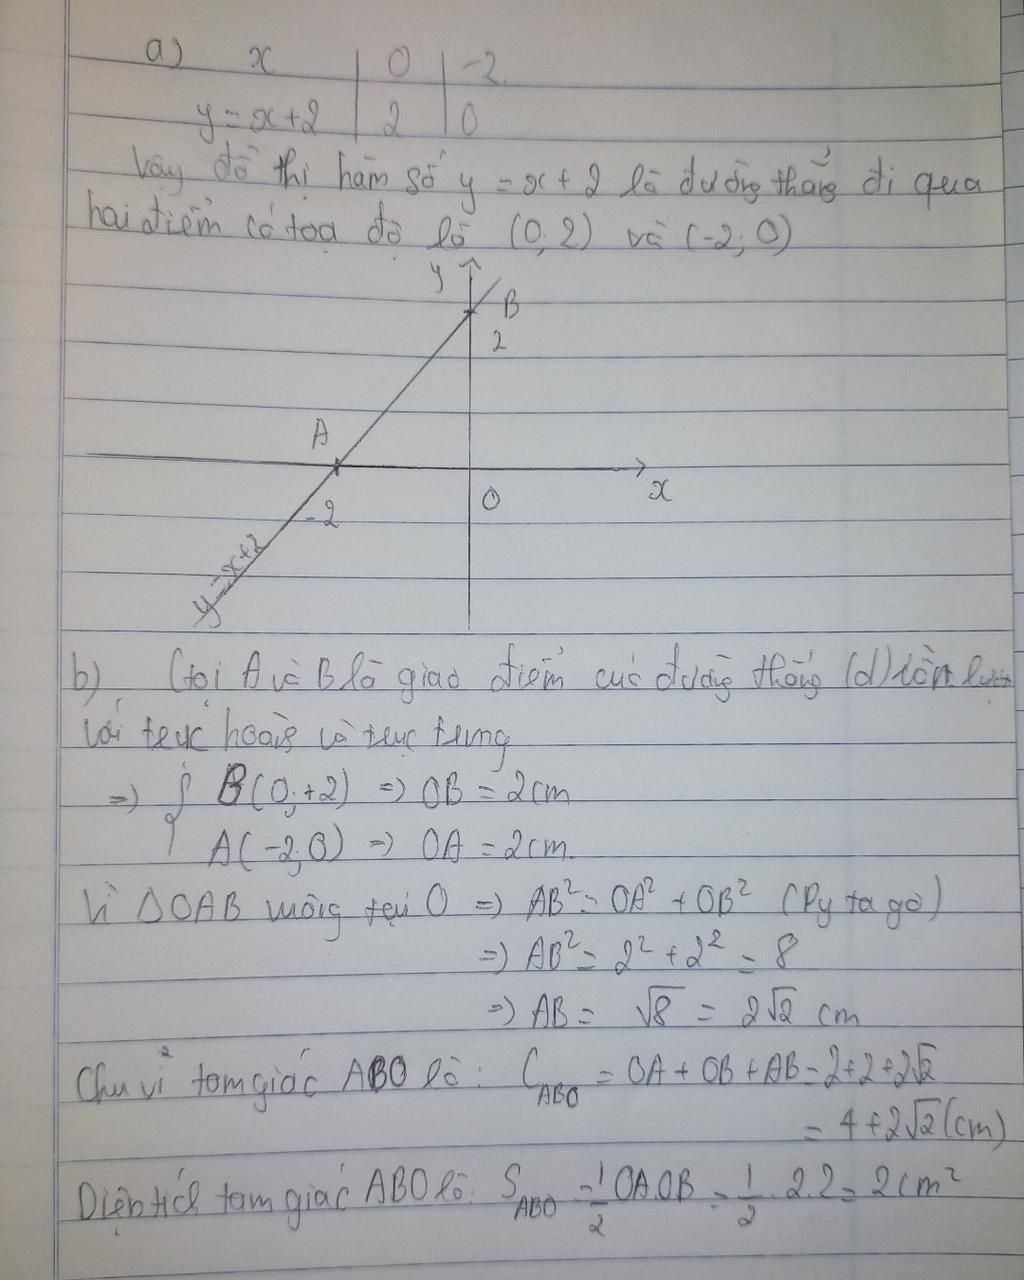 a) x | 0 | -2
y = x+2 | 2 | 0
Vậy đồ thị hàm số y = x + 2 là đường thẳng đi qua
hai điểm có tọa độ là (0; 2) và (-2; 0)
y
B
2
A
x
O
-2
y=x+2
b) Gọi A và B là giao điểm của đường thẳng (d) lần lượt
với trục hoành và trục tung
=> { B(0;+2) => OB = 2cm
A(-2;0) => OA = 2cm.
Vì ΔOAB vuông tại O => AB² = OA² + OB² (Py ta go)
=> AB² = 2² + 2² = 8
=> AB = √8 = 2√2 cm
Chu vi tam giác ABO là: C_ABO = OA + OB + AB = 2+2+2√2
= 4+2√2 (cm)
Diện tích tam giác ABO là: S_ABO = 1/2 OA.OB = 1/2 . 2.2 = 2cm²